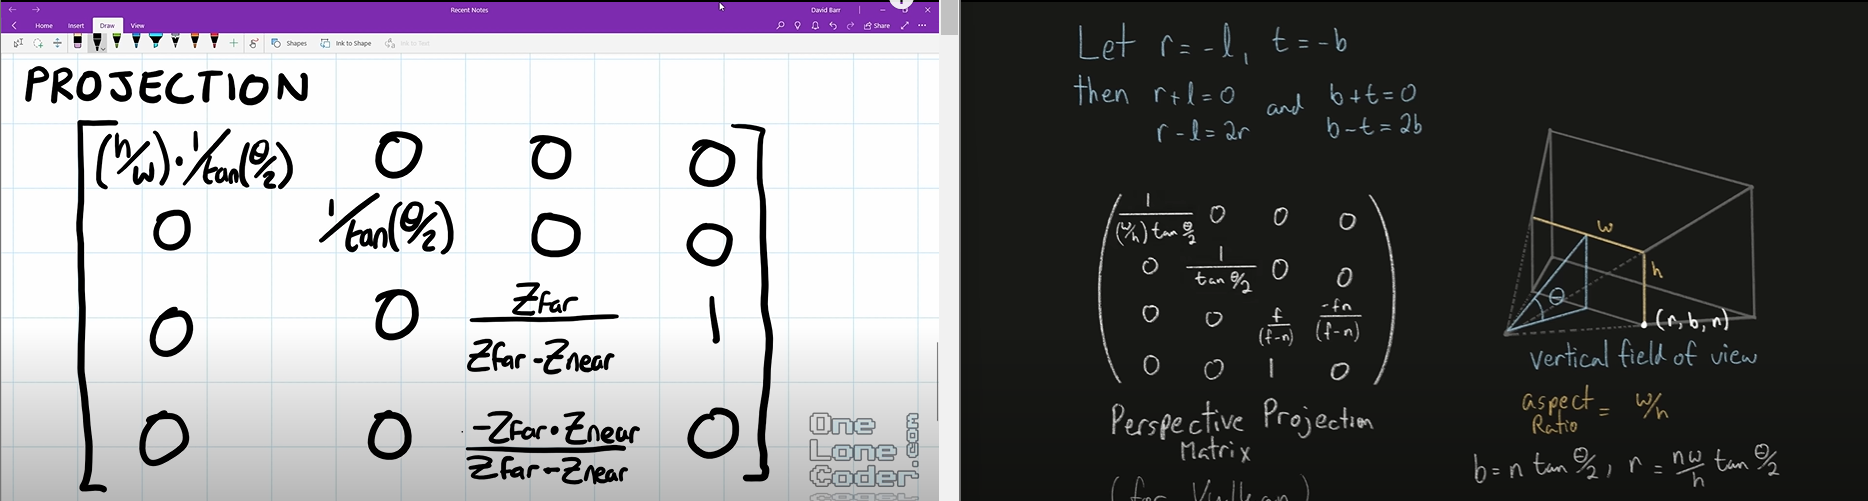 Recent Notes
David Barr
Home Insert Draw View
Share
Shapes Ink to Shape Ink to Text
PROJECTION
(h/w)·1/tan(θ/2) 0 0 0
0 1/tan(θ/2) 0 0
0 0 Zfar/Zfar-Znear 1
0 0 -Zfar·Znear/Zfar-Znear 0
One
Lone
Coder
.com
Let r = -l, t = -b
then r+l=0 and b+t=0
r-l=2r b-t=2b
1/(w/h)tan θ/2 0 0 0
0 1/tan θ/2 0 0
0 0 f/(f-n) -fn/(f-n)
0 0 1 0
Perspective Projection
Matrix
(for Vulkan)
w
h
θ
(r, b, n)
vertical field of view
aspect Ratio = w/h
b = n tan θ/2, r = nw/h tan θ/2